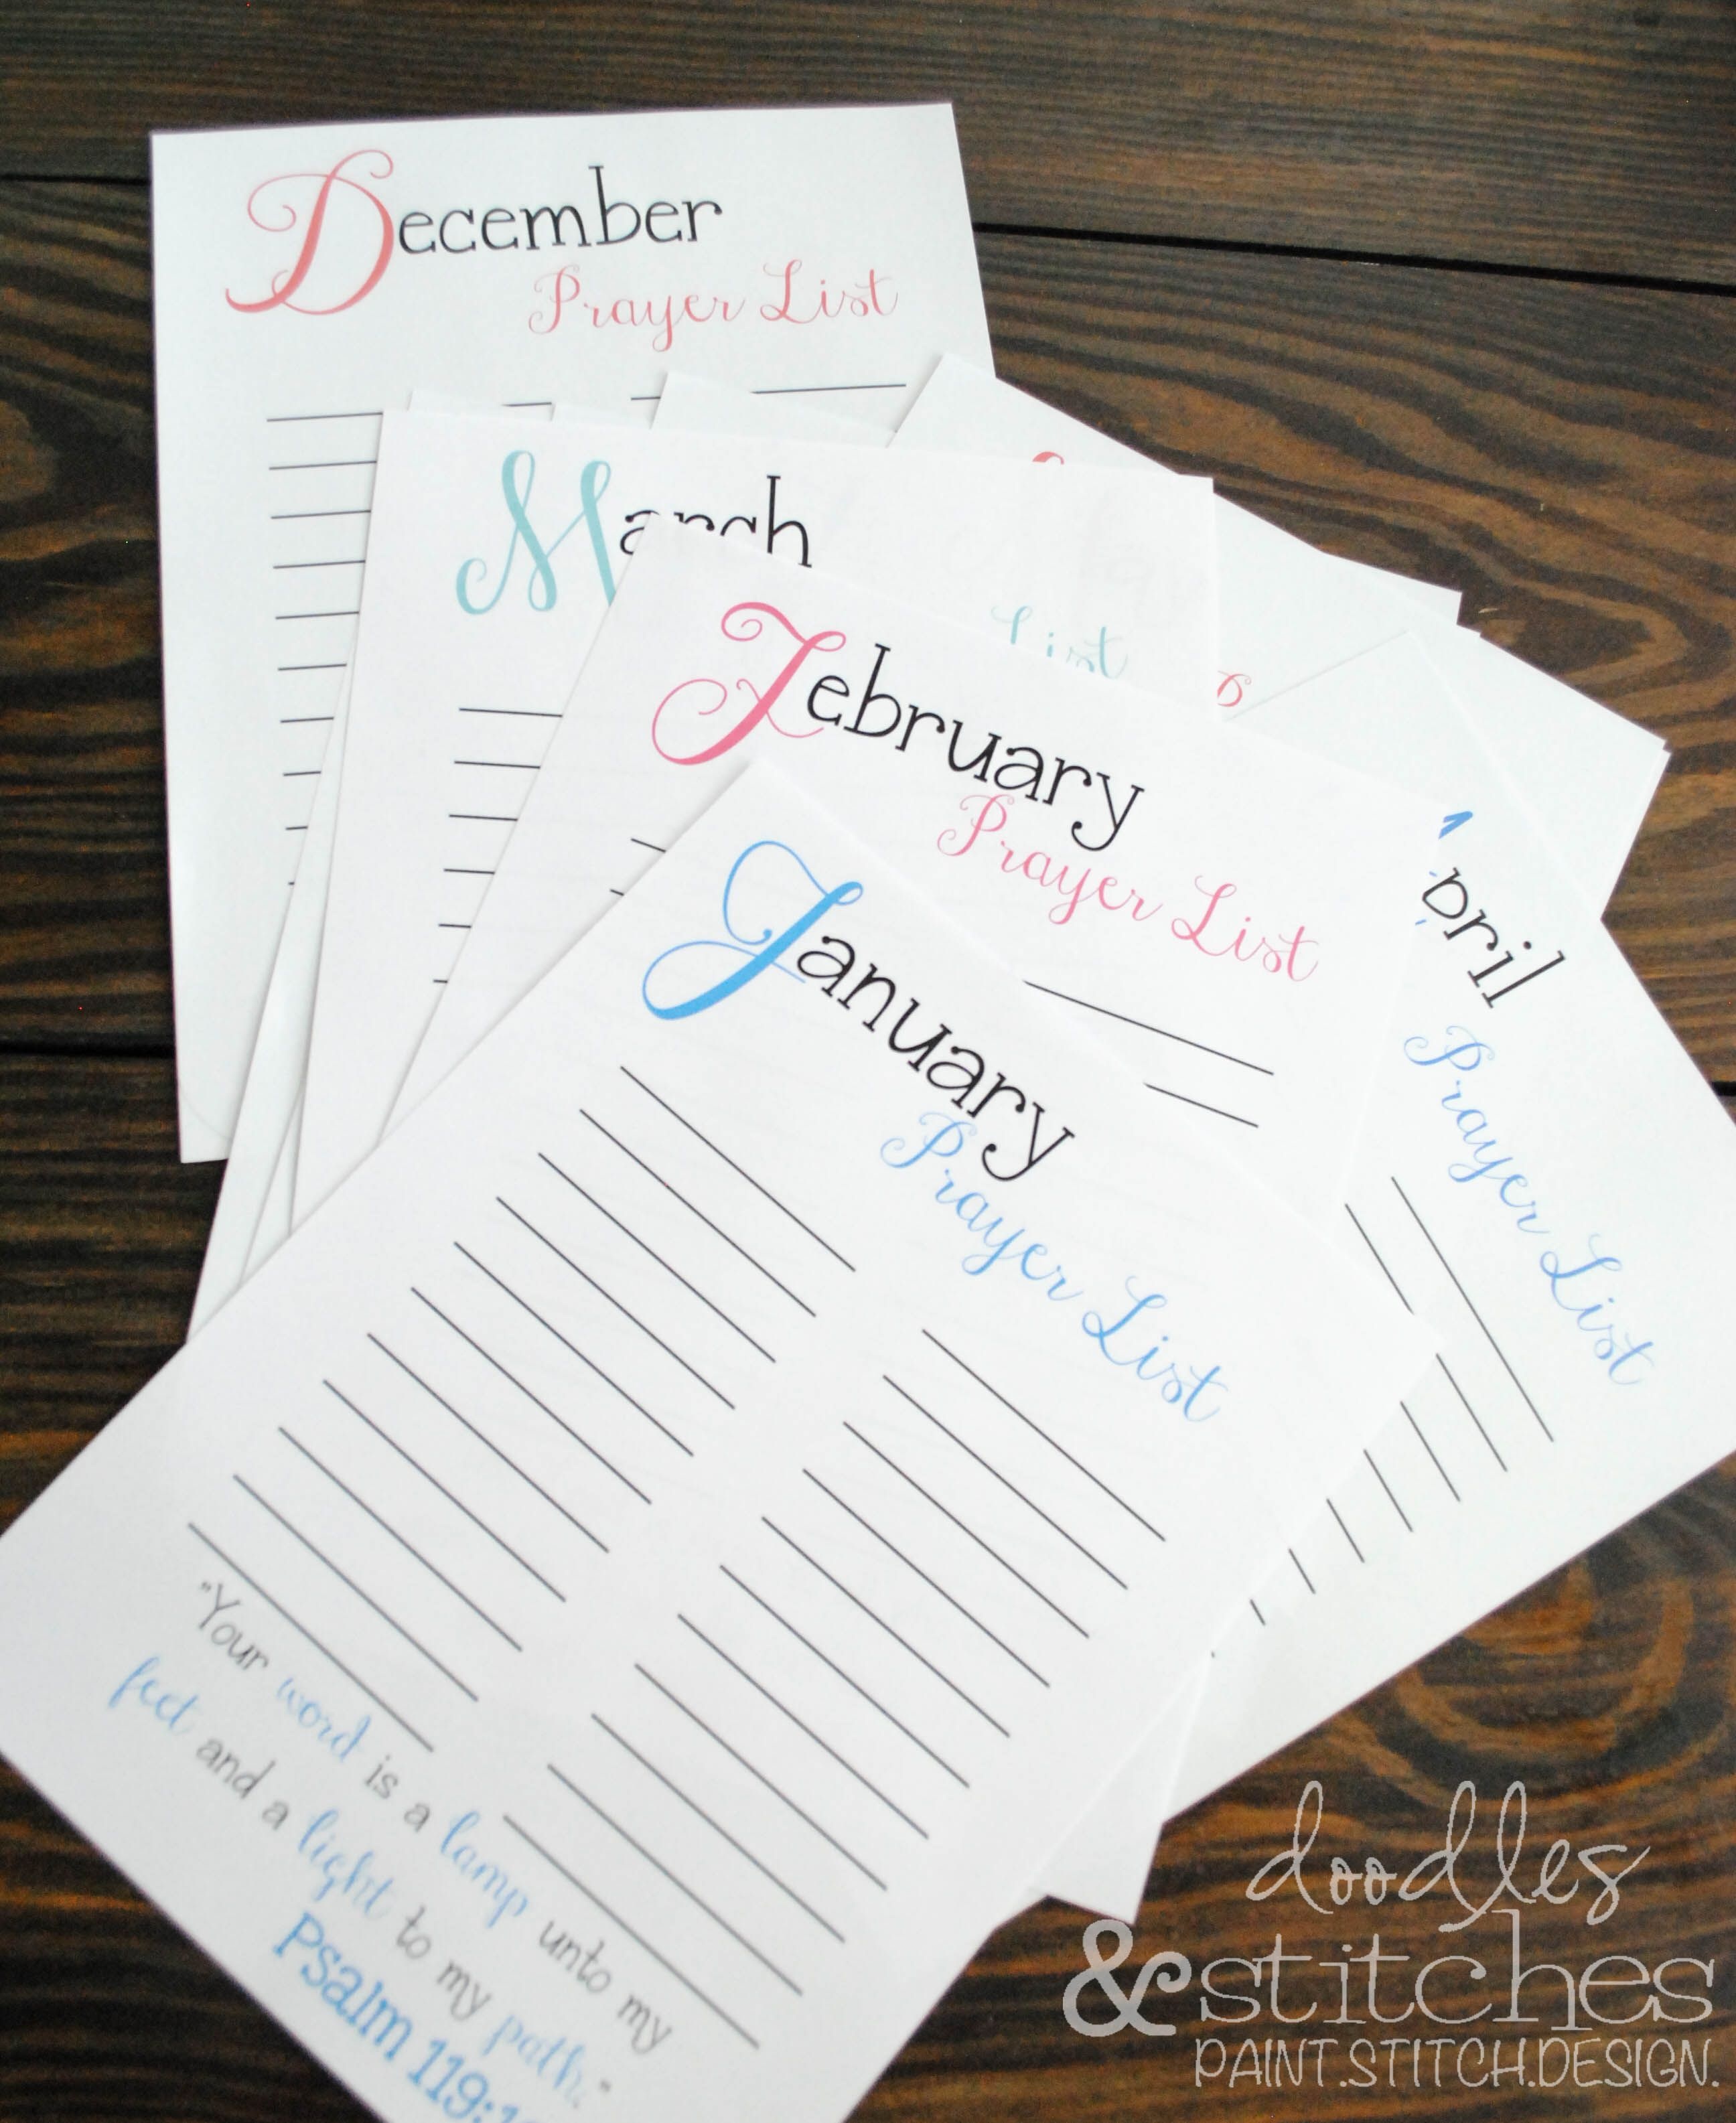 December
Prayer List
March
List
February
Prayer List
January
Prayer List
"Your word is a lamp unto my
feet and a light to my path."
Psalm 119:1
pril
Prayer List
doodles
&stitches
PAINT.STITCH.DESIGN.